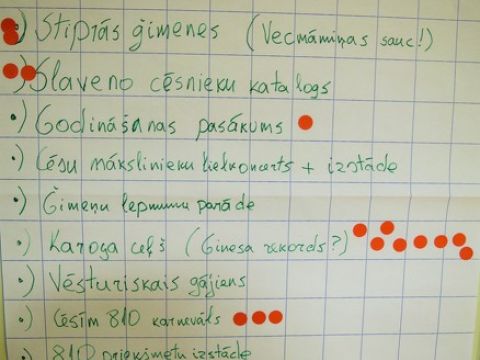 •) Stiprās ģimenes (Vecmāmiņas sauc!)
•) Slaveno cēsnieku katalogs
•) Godināšanas pasākums
•) Cēsu mākslinieku lielkoncerts + izstāde
•) Ģimeņu lepnumu parāde
•) Karoga ceļš (Ginesa rekords?)
•) Vēsturiskais gājiens
•) Cēsīm 810 karnevāls
•) 810 priekšmetu izstāde